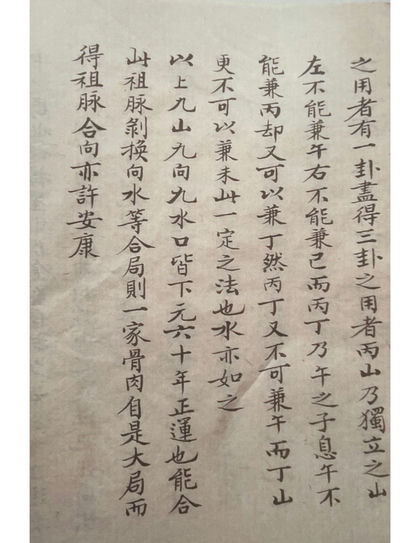 之用者有一卦盡得三卦之用者丙山乃獨立之山
左不能兼午右不能兼巳而丙丁乃午之子息午不
能兼丙却又可以兼丁然丙丁又不可兼午而丁山
更不可以兼未此一定之法也水亦如之
以上九山九向九水口皆下元六十年正運也能合
此祖脉剝換向水等合局則一家骨肉自是大局而
得祖脉合向亦許安康